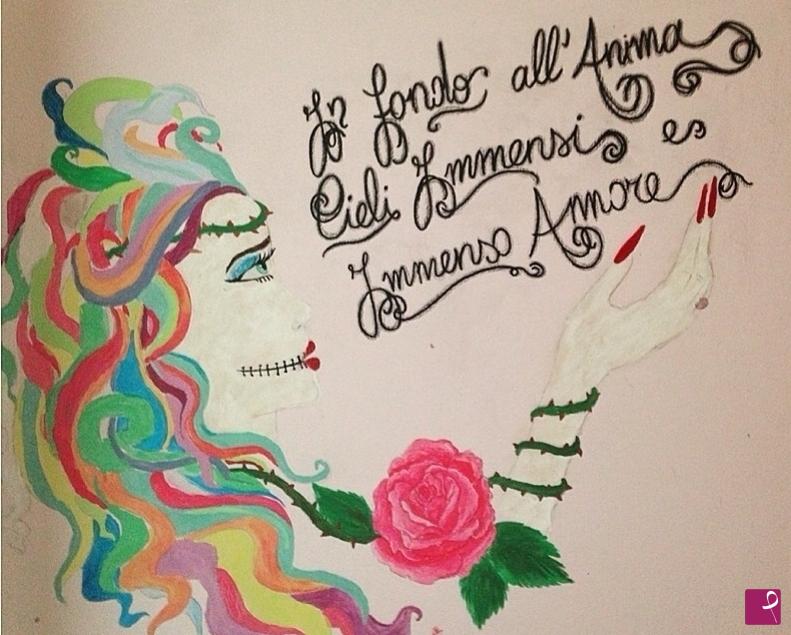 In fondo all'Anima
Cieli Immensi e
Immenso Amore